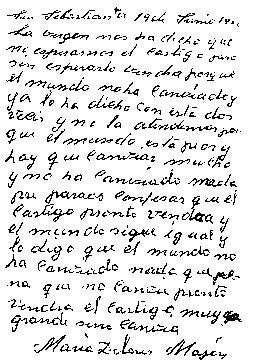 San Sebastian 19 de Junio 19
La virgen nos ha dicho que
no esperamos el Castigo pero
sin esperarlo vendra porque
el mundo no ha Canviado y
ya lo ha dicho con esta dos
veces y no la atendemos por
que el mundo está peor y
hay que Canviar mucho
y no ha Canviado nada
que el
Castigo pronto vendra y
el mundo sigue igual y
lo digo que el mundo no
ha Canviado nada que pe
na que no Canvia pronto
vendra el Castigo muy
grande sino Canvia
Maria Dolores Mazón